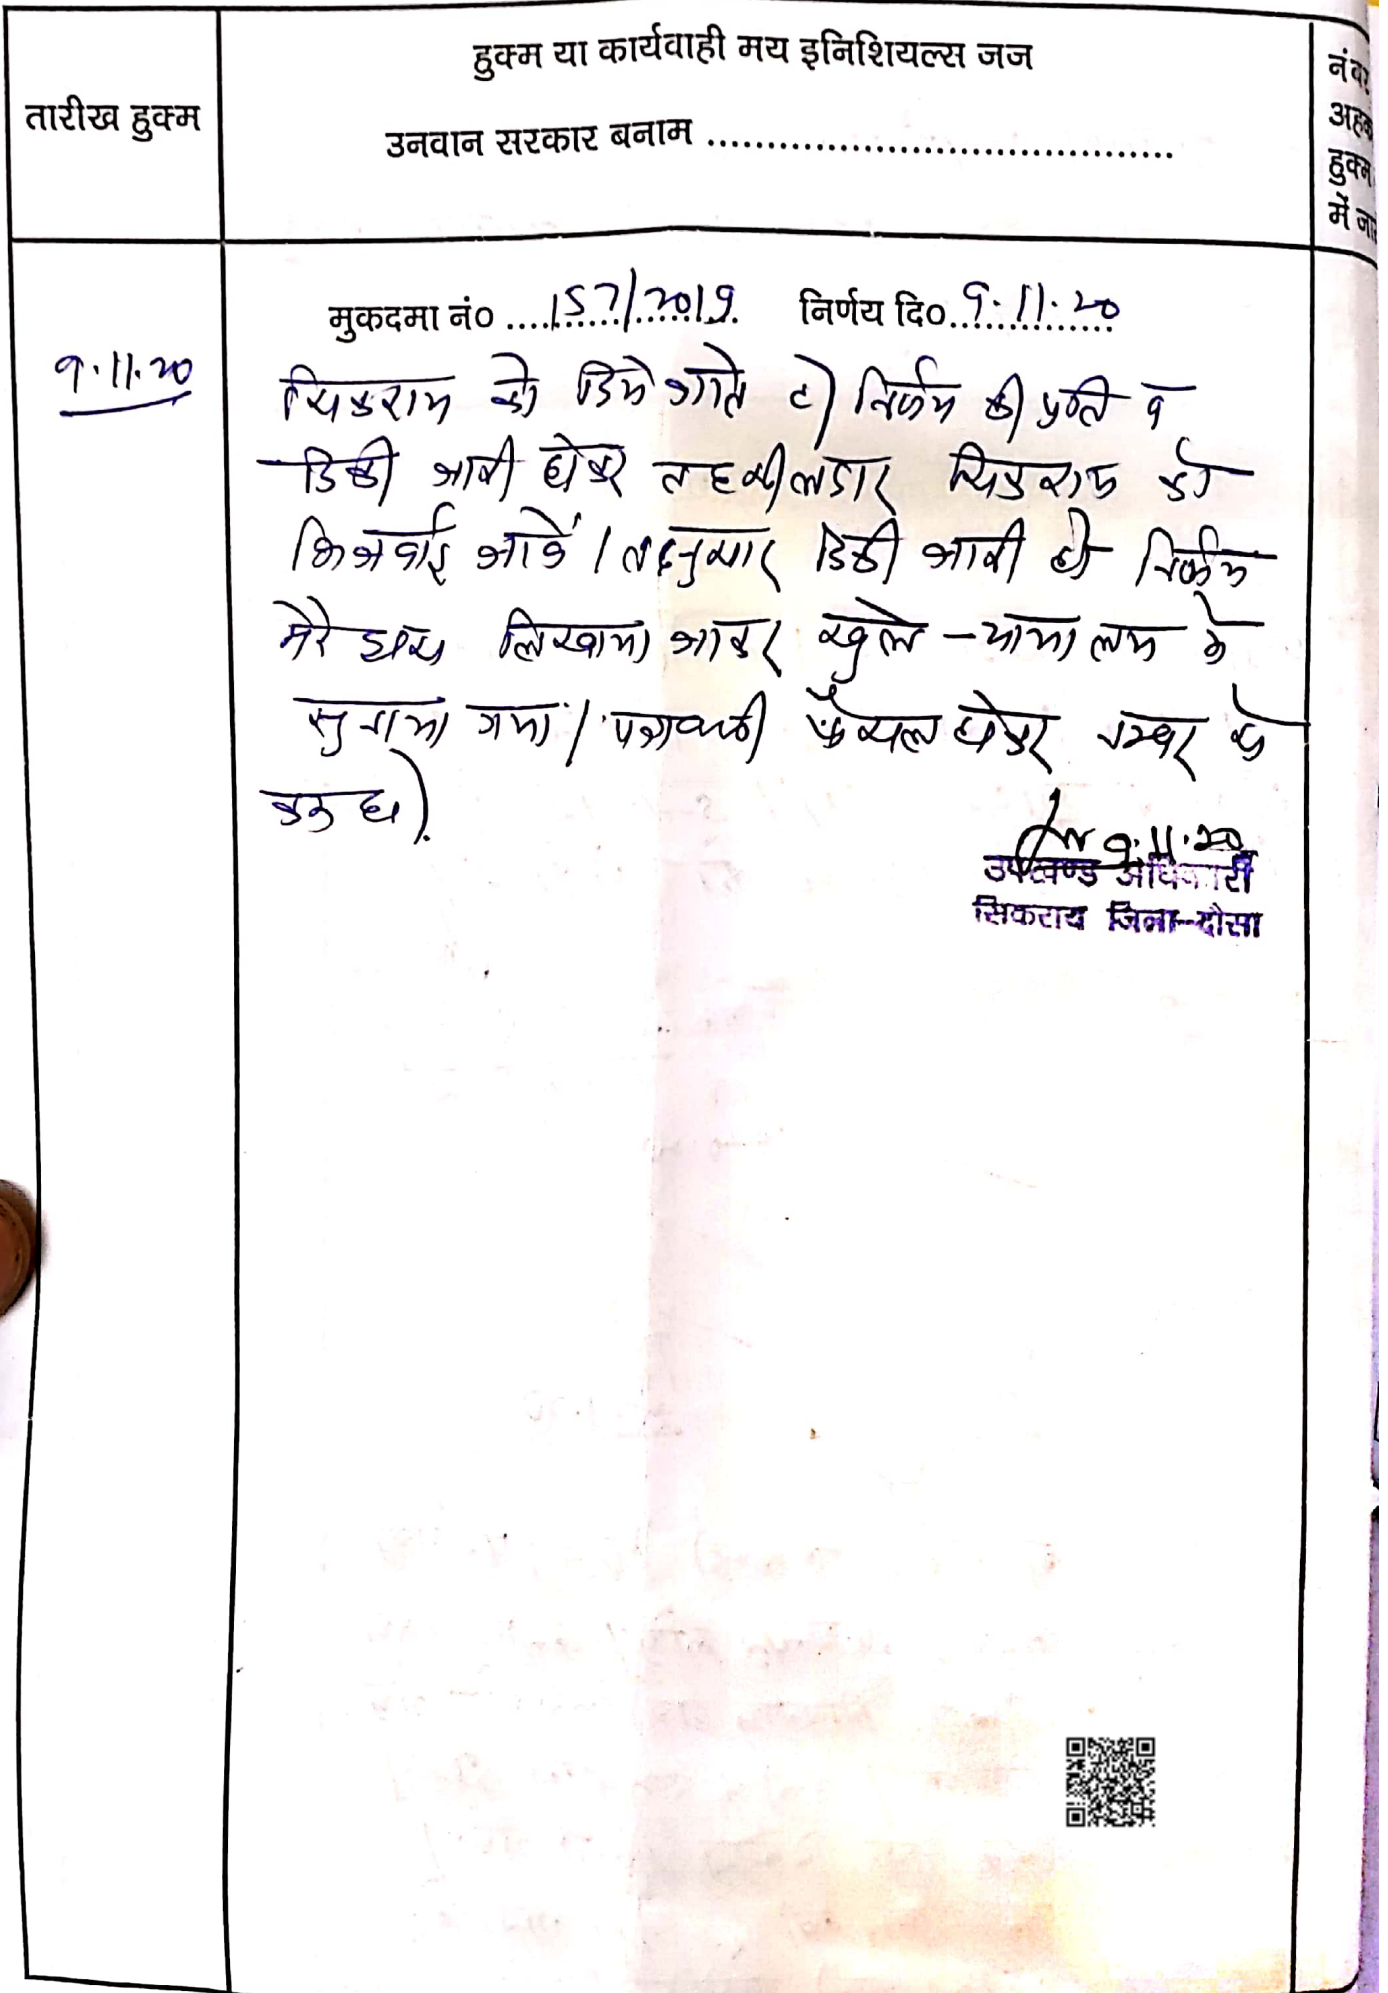 तारीख हुक्म
हुक्म या कार्यवाही मय इनिशियल्स जज
उनवान सरकार बनाम ......................................
नं
हुक्म
में
मुकदमा नं० 157/2019 निर्णय दि० 9.11.20
9.11.20
सिकराय को दिये जाते है। निर्णय की प्रति व
डिक्री जारी होकर तहसीलदार सिकराय को
भिजवाई जावें। तद्नुसार डिक्री जारी हो निर्णय
मेरे द्वारा लिखाया जाकर खुले न्यायालय में
सुनाया गया। पत्रावली फैसल होकर नम्बर से
कम हो।
9.11.20
उपखण्ड अधिकारी
सिकराय जिला-दौसा